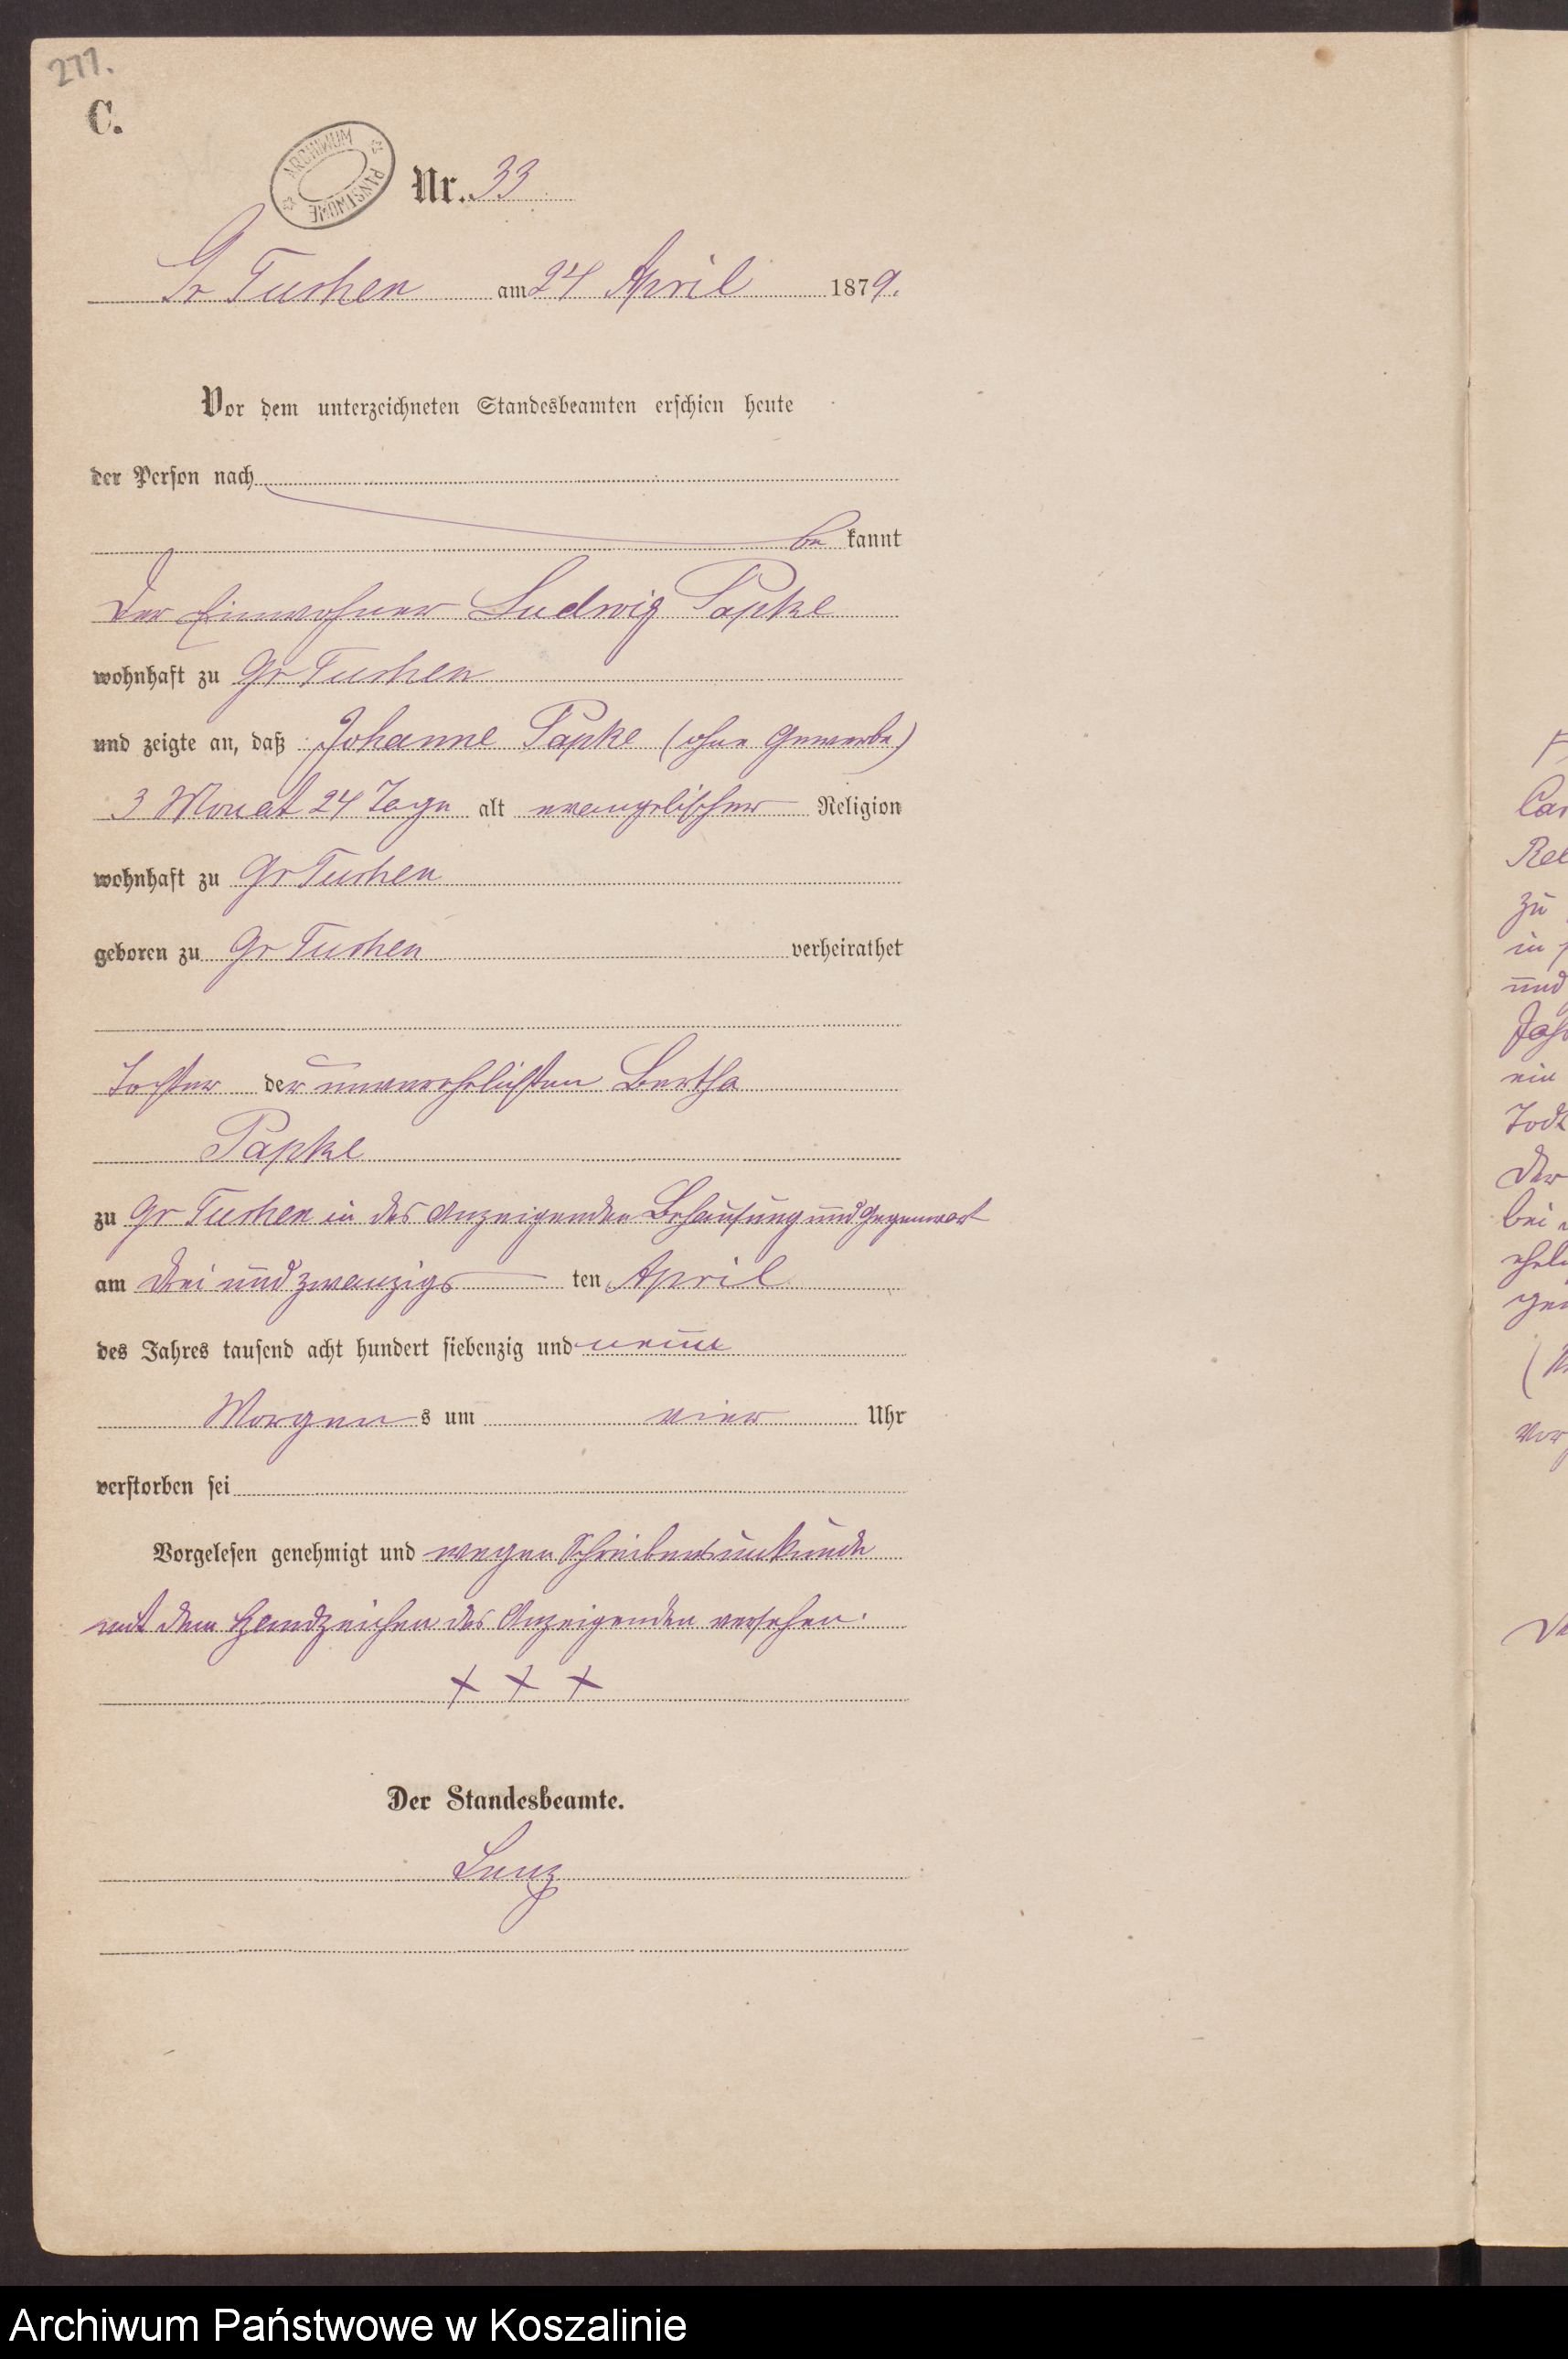 277.
C.
ARCHIWUM PAŃSTWOWE
Nr. 33
Gr Tuchen am 24 April 1879.
Vor dem unterzeichneten Standesbeamten erschien heute
der Person nach
be kannt
der Einwohner Ludwig Papke
wohnhaft zu Gr Tuchen
und zeigte an, daß Johanne Papke (ohne Gewerbe)
3 Monat 24 Tage alt evangelischer Religion
wohnhaft zu Gr Tuchen
geboren zu Gr Tuchen verheirathet
Tochter der unverehelichten Bertha
Papke
zu Gr Tuchen in des Anzeigenden Behausung und Gegenwart
am drei und zwanzigs ten April
des Jahres tausend acht hundert siebenzig und neun
Morgen s um vier Uhr
verstorben sei
Vorgelesen genehmigt und wegen Schreibensunkunde
mit dem Handzeichen des Anzeigenden versehen.
+ + +
Der Standesbeamte.
Lenz
Rel
zu
in
und
ein
Todt
der
bei
Vor
Archiwum Państwowe w Koszalinie